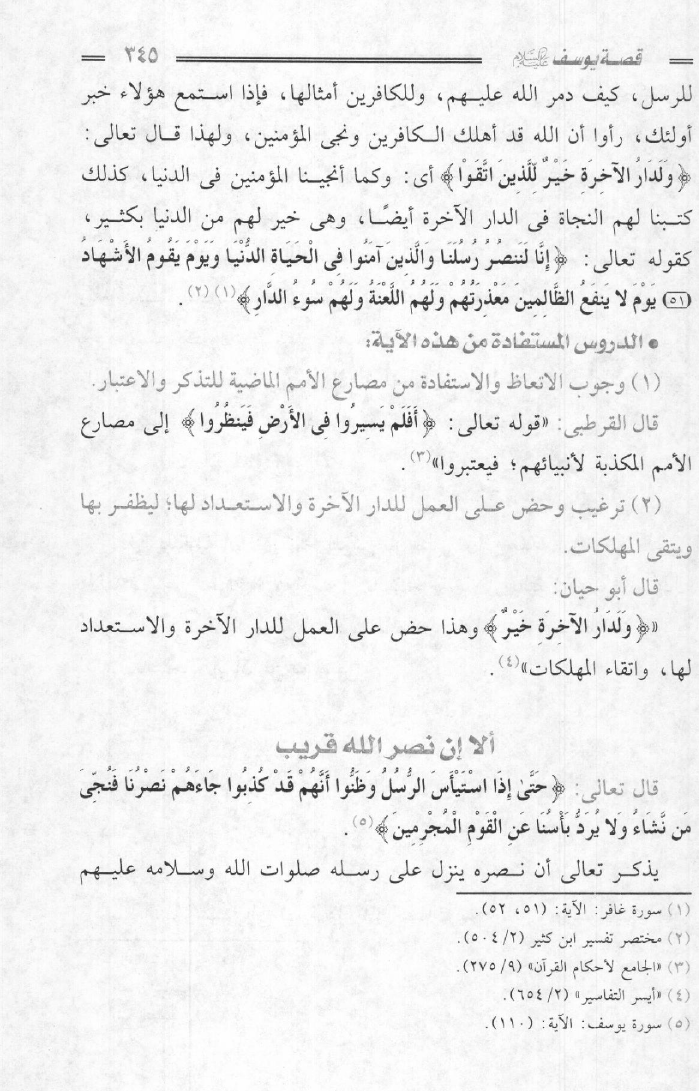 قصة يوسف عليه السلام ٣٤٥
للرسل، كيف دمر الله عليهم، وللكافرين أمثالها، فإذا استمع هؤلاء خبر
أولئك، رأوا أن الله قد أهلك الكافرين ونجى المؤمنين، ولهذا قال تعالى:
﴿وَلَدَارُ الآخِرَةِ خَيْرٌ لِّلَّذِينَ اتَّقَوْا﴾ أى: وكما أنجينا المؤمنين فى الدنيا، كذلك
كتبنا لهم النجاة فى الدار الآخرة أيضًا، وهى خير لهم من الدنيا بكثير،
كقوله تعالى: ﴿إِنَّا لَنَنصُرُ رُسُلَنَا وَالَّذِينَ آمَنُوا فِي الْحَيَاةِ الدُّنْيَا وَيَوْمَ يَقُومُ الأَشْهَادُ
(٥١) يَوْمَ لا يَنفَعُ الظَّالِمِينَ مَعْذِرَتُهُمْ وَلَهُمُ اللَّعْنَةُ وَلَهُمْ سُوءُ الدَّارِ﴾(١) (٢).
• الدروس المستفادة من هذه الآية:
(١) وجوب الاتعاظ والاستفادة من مصارع الأمم الماضية للتذكر والاعتبار.
قال القرطبى: «قوله تعالى: ﴿أَفَلَمْ يَسِيرُوا فِي الأَرْضِ فَيَنظُرُوا﴾ إلى مصارع
الأمم المكذبة لأنبيائهم؛ فيعتبروا»(٣).
(٢) ترغيب وحض على العمل للدار الآخرة والاستعداد لها؛ ليظفر بها
ويتقى المهلكات.
قال أبو حيان:
«﴿وَلَدَارُ الآخِرَةِ خَيْرٌ﴾ وهذا حض على العمل للدار الآخرة والاستعداد
لها، واتقاء المهلكات»(٤).
ألا إن نصر الله قريب
قال تعالى: ﴿حَتَّىٰ إِذَا اسْتَيْأَسَ الرُّسُلُ وَظَنُّوا أَنَّهُمْ قَدْ كُذِبُوا جَاءَهُمْ نَصْرُنَا فَنُجِّيَ
مَن نَّشَاءُ وَلا يُرَدُّ بَأْسُنَا عَنِ الْقَوْمِ الْمُجْرِمِينَ﴾(٥).
يذكر تعالى أن نصره ينزل على رسله صلوات الله وسلامه عليهم
(١) سورة غافر: الآية: (٥١، ٥٢).
(٢) مختصر تفسير ابن كثير (٢/ ٥٠٤).
(٣) «الجامع لأحكام القرآن» (٩/ ٢٧٥).
(٤) «أيسر التفاسير» (٢/ ٦٥٤).
(٥) سورة يوسف: الآية: (١١٠).